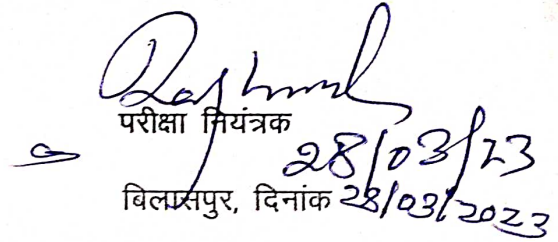 परीक्षा नियंत्रक
28/03/23
बिलासपुर, दिनांक 28/03/2023